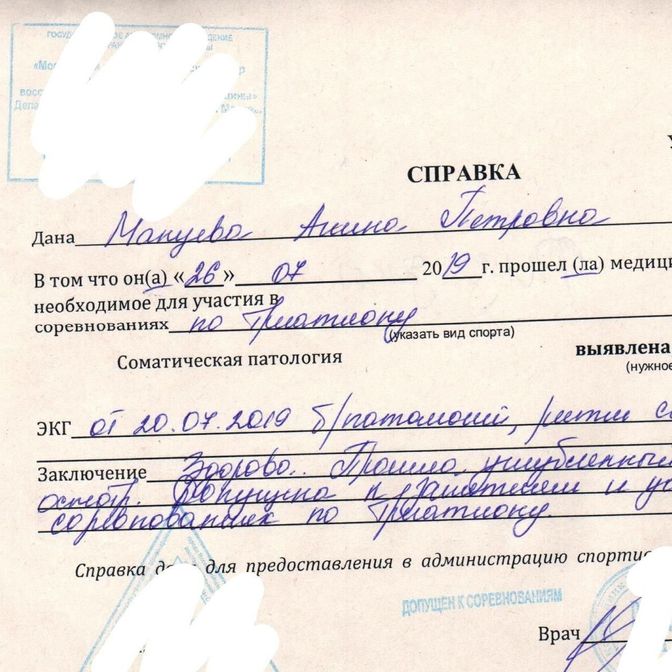 СПРАВКА
Дана Манцева Амина Петровна
В том что он(а) «26» 07 2019 г. прошел (ла) медици
необходимое для участия в
соревнованиях по Триатлону
(указать вид спорта)
Соматическая патология выявлена
(нужное
ЭКГ от 20.07.2019 б/патологий, ритм с
Заключение Здорова. Прошла углубленный
осмотр. Допущена к занятиям и у
соревнованиях по Триатлону.
Справка для предоставления в администрацию спорти
ДОПУЩЕН К СОРЕВНОВАНИЯМ
Врач